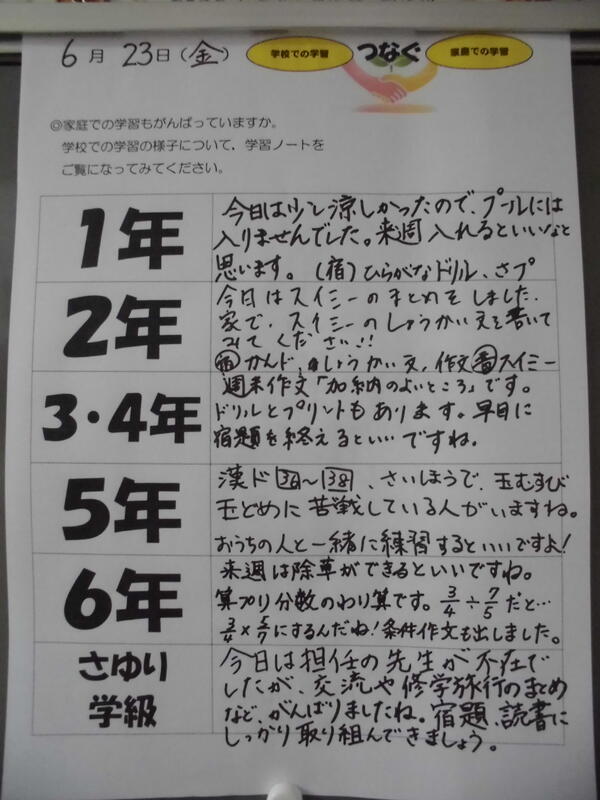 6月 23日(金)
学校での学習 つなぐ 家庭での学習
◎家庭での学習もがんばっていますか。
学校での学習の様子について,学習ノートを
ご覧になってみてください。
1年
今日は少し涼しかったので、プールには
入りませんでした。来週入れるといいなと
思います。(宿)ひらがなドリル、さプ
2年
今日はスイミーのまとめをしました。
家で、スイミーのしょうかい文を書いて
みてください!!
宿かんド,しょうかい文,作文音スイミー
3・4年
週末作文「加納のよいところ」です。
ドリルとプリントもあります。早目に
宿題を終えるといい…ですね。
5年
漢ド36~38、さいほうで、玉むすび
玉どめに苦戦している人がいますね。
おうちの人と一緒に練習するといいですよ!
6年
来週は除草ができるといいですね。
算プリ分数のわり算です。3/4÷7/5だと…
3/4×5/7にするんだね!条件作文も出しました。
さゆり
学級
今日は担任の先生が不在で
したが、交流や修学旅行のまとめ
など、がんばりましたね。宿題、読書に
しっかり取り組んできましょう。